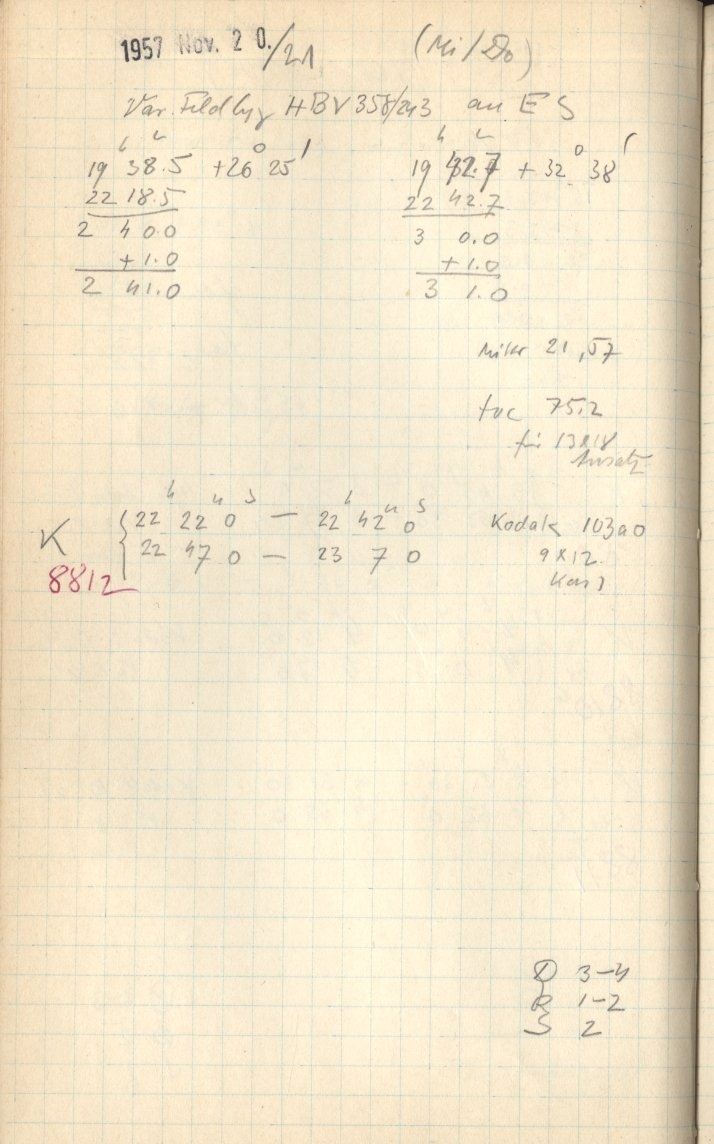 1957 Nov. 20./21 (Mi/Do)
Var. Feldbg HBV 358/243 an ES
h m
19 38.5 +26° 25'
22 18.5
2 40.0
+1.0
2 41.0
h m
19 42.7 +32° 38'
22 42.7
3 0.0
+1.0
3 1.0
Mikr 21,57
foc 75,2
für 13x18
Ansatz
h m s h m s
K { 22 22 0 — 22 42 0 Kodak 103a0
22 47 0 — 23 7 0 9x12
8812
D 3-4
R 1-2
S 2